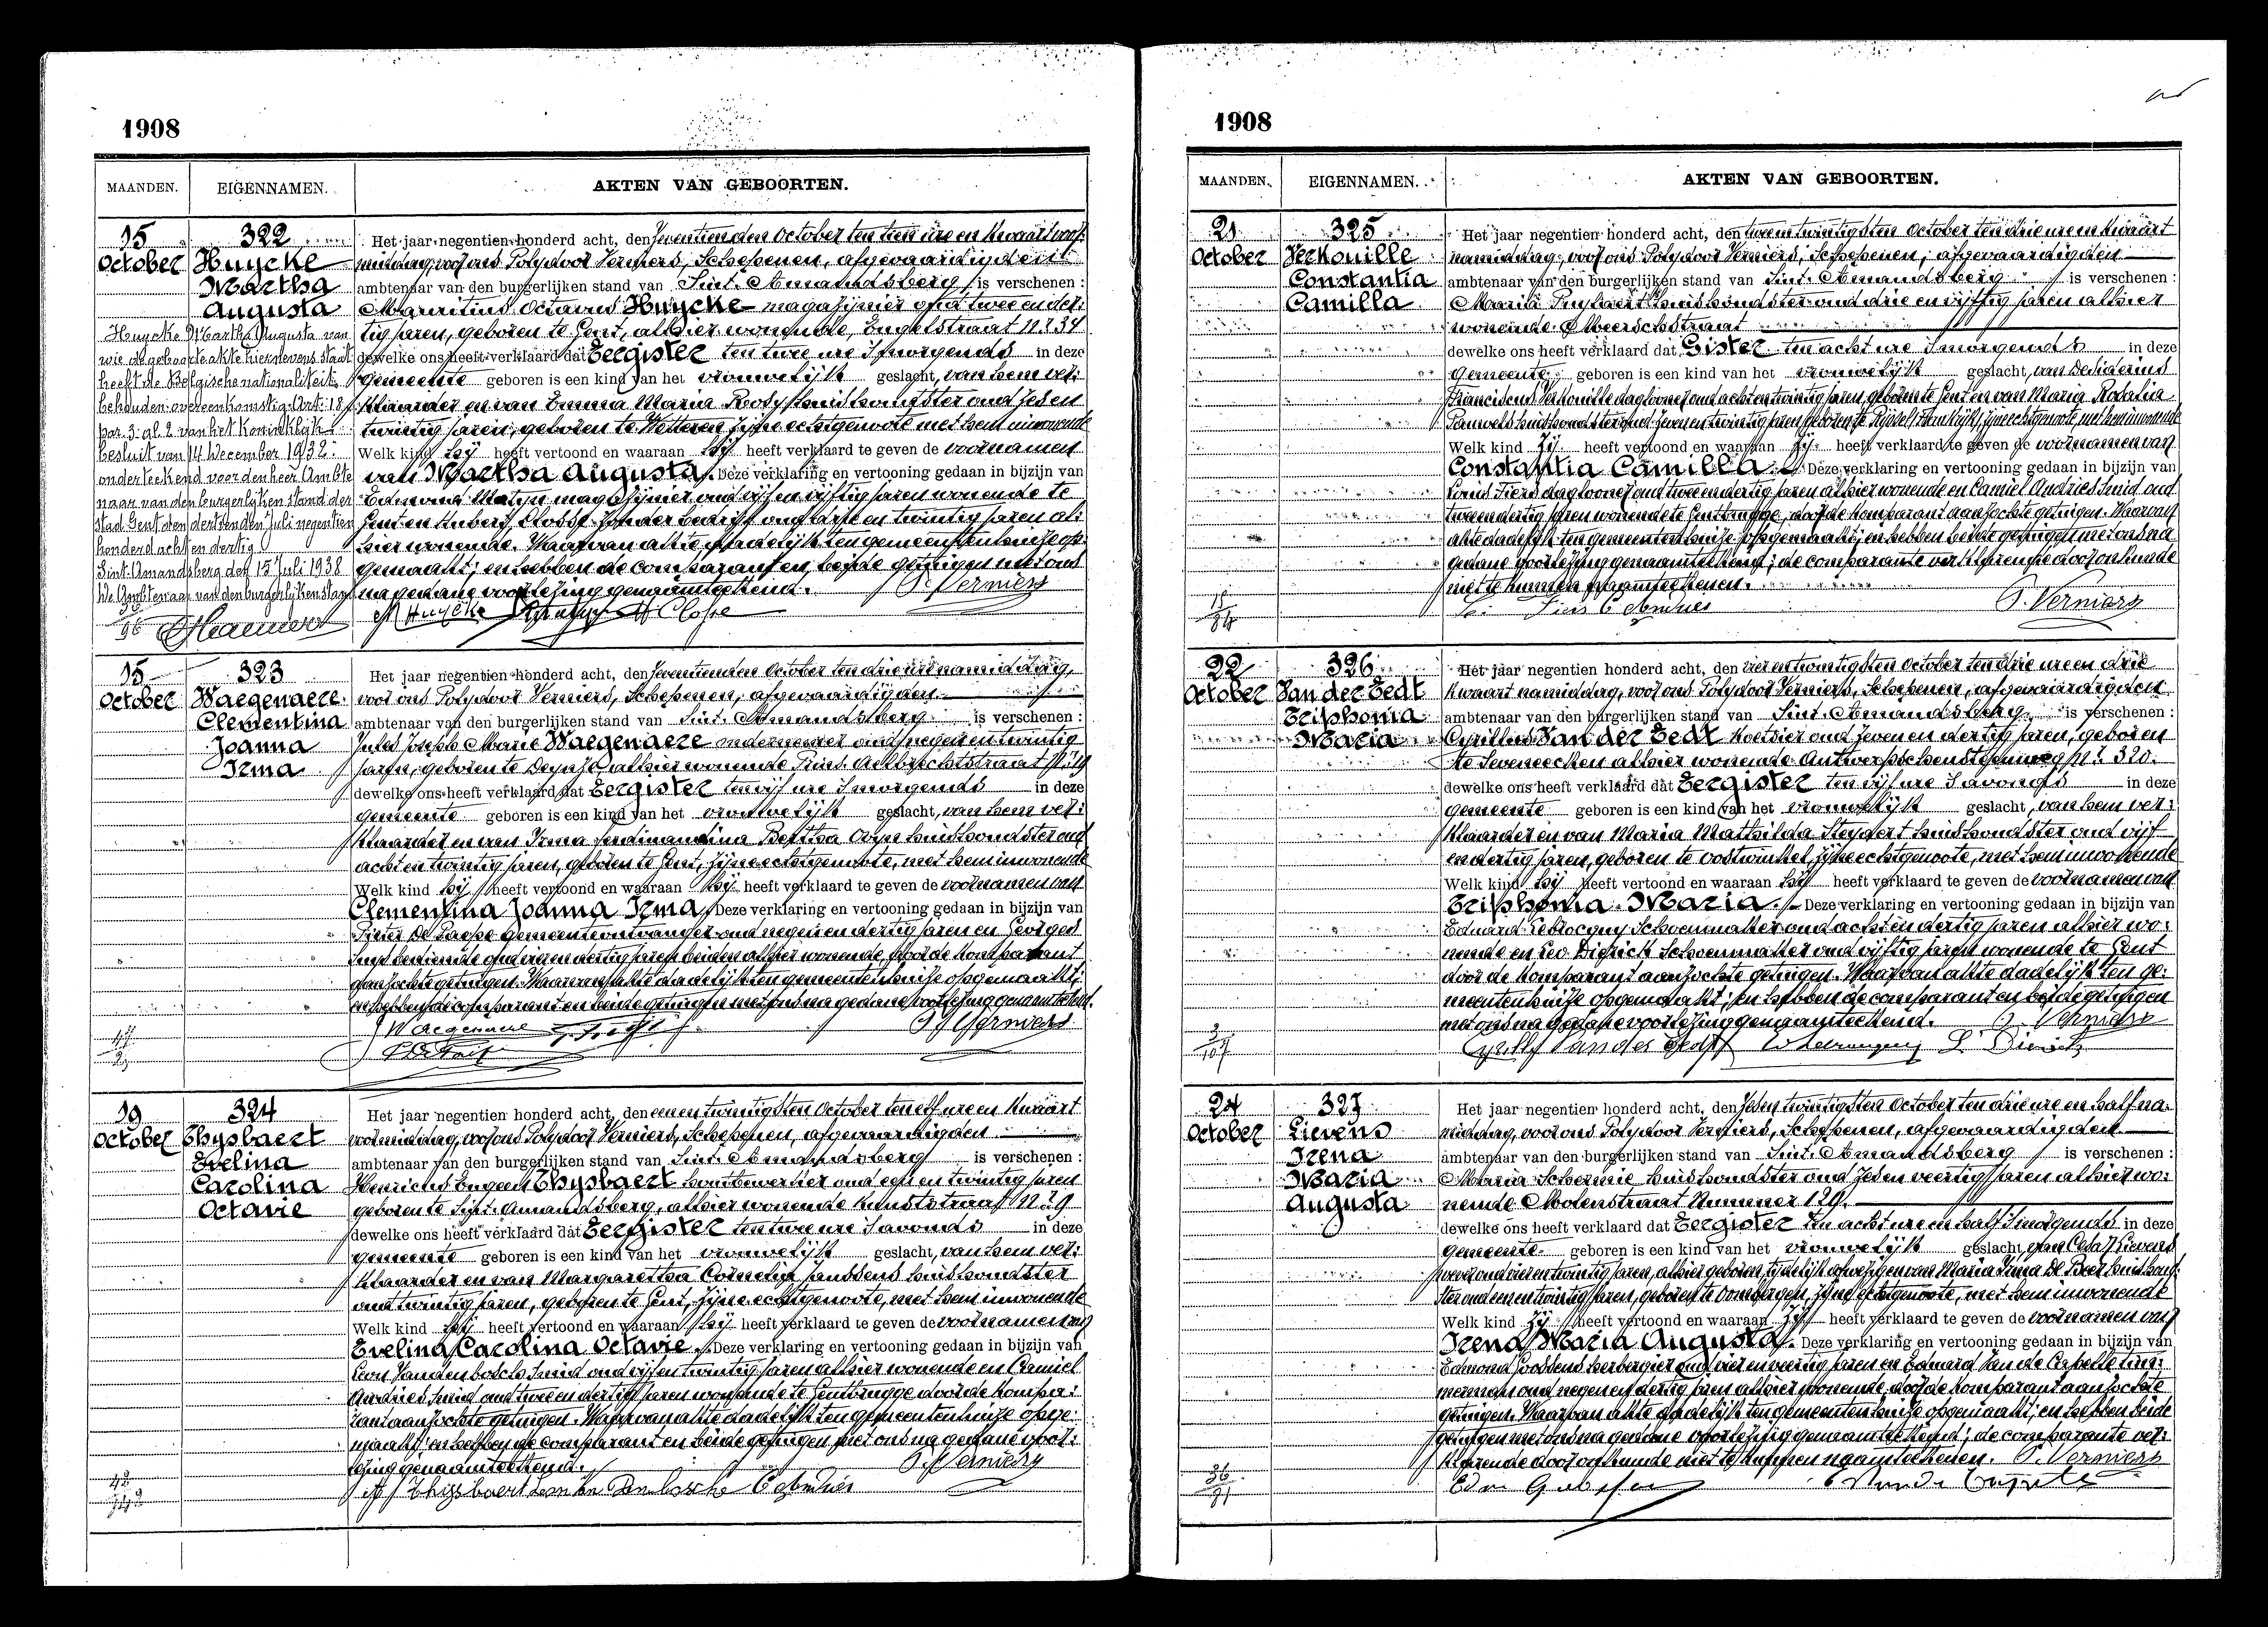 1908
MAANDEN. EIGENNAMEN. AKTEN VAN GEBOORTEN.
15 October
322
Huycke
Martha
Augusta
Huycke Martha Augusta van
wie de geboorteakte hiernevens staat
heeft de Belgische nationaliteit
behouden overeenkomstig Art. 18
par. 3 al. 2 van het Koninklijk
besluit van 14 December 1932:
onderteekend voor den heer Ambte
naar van den burgerlijken stand der
stad Gent den dertienden Juli negentien
honderd acht en dertig
Sint-Amandsberg den 15 Juli 1938
De Ambtenaar van den burgerlijken stand
Het jaar negentien honderd acht, den zeventienden October ten tien ure en kwaart voor:
middag, voor ons Polydoor Verniers, Schepenen, afgevaardigden
ambtenaar van den burgerlijken stand van Sint-Amandsberg is verschenen :
Mauritius Octavus Huycke magazijnier oud twee en der:
tig jaren, geboren te Gent, alhier wonende, Engelstraat Nr 34
dewelke ons heeft verklaard dat Eergister ten twee ure 's morgends in deze
gemeente geboren is een kind van het vrouwelijk geslacht, van hem ver:
klaarder en van Emma Maria Rooy huishoudster oud zes en
twintig jaren, geboren te Wetteren zijne echtgenoote met hem inwonende
Welk kind hij heeft vertoond en waaraan hij heeft verklaard te geven de voornamen
van Martha Augusta. Deze verklaring en vertooning gedaan in bijzijn van
Edmond magazijnier oud vijf en vijftig jaren wonende te
Gent en Hubert Closse zonder bedrijf oud en twintig jaren al:
hier wonende. Waarvan akte dadelijk ten gemeentenhuize op:
gemaakt; en hebben de comparant en beide getuigen met ons
na gedane voorlezing genaamteekend. P. Verniers
M Huycke H Closse
15 October
323
Waegenaere
Clementina
Joanna
Irma
Het jaar negentien honderd acht, den zeventienden October ten drie ure namiddag,
voor ons Polydoor Verniers, Schepenen, afgevaardigden
ambtenaar van den burgerlijken stand van Sint-Amandsberg is verschenen :
Jules Joseph Marie Waegenaere ondernemer oud negen en twintig
jaren, geboren te Deynze, alhier wonende Sint-Aelbrechtstraat
dewelke ons heeft verklaard dat Eergister ten vijf ure 's morgends in deze
gemeente geboren is een kind van het vrouwelijk geslacht, van hem ver:
klaarder en van Irma Ferdinandina Bertha huishoudster oud
acht en twintig jaren, geboren te Gent, zijne echtgenoote, met hem inwonende
Welk kind hij heeft vertoond en waaraan hij heeft verklaard te geven de voornamen van
Clementina Joanna Irma. Deze verklaring en vertooning gedaan in bijzijn van
Pieter De Paepe gemeenteontvanger oud negen en dertig jaren en Georges
bediende oud en dertig jaren beiden alhier wonende, door de komparant
aanzochte getuigen. Waarvan akte dadelijk ten gemeentenhuize opgemaakt;
en hebben de comparant en beide getuigen met ons na gedane voorlezing genaamteekend.
Waegenaere P. Verniers
19 October
324
Thysbaert
Evelina
Carolina
Octavie
Het jaar negentien honderd acht, den een en twintigsten October ten elf ure en kwaart
voormiddag, voor ons Polydoor Verniers, Schepenen, afgevaardigden
ambtenaar van den burgerlijken stand van Sint-Amandsberg is verschenen :
Henricus Eugeen Thysbaert houtbewerker oud een en twintig jaren
geboren te Sint-Amandsberg, alhier wonende Kunststraat Nr 29
dewelke ons heeft verklaard dat Eergister ten twee ure 's avonds in deze
gemeente geboren is een kind van het vrouwelijk geslacht, van hem ver:
klaarder en van Margaretha Cornelia Janssens huishoudster
oud twintig jaren, geboren te Gent, zijne echtgenoote, met hem inwonende
Welk kind hij heeft vertoond en waaraan hij heeft verklaard te geven de voornamen van
Evelina Carolina Octavie. Deze verklaring en vertooning gedaan in bijzijn van
Leon Vandenbossche smid oud vijf en twintig jaren alhier wonende en Camiel
Andries smid oud twee en dertig jaren wonende te Gentbrugge door de kompa:
rant aanzochte getuigen. Waarvan akte dadelijk ten gemeentenhuize opge:
maakt; en hebben de comparant en beide getuigen met ons na gedane voor:
lezing genaamteekend. P. Verniers
Thysbaert Leon Van Denbossche C Andries
1908
MAANDEN. EIGENNAMEN. AKTEN VAN GEBOORTEN.
21 October
325
Verkouille
Constantia
Camilla
Het jaar negentien honderd acht, den twee en twintigsten October ten drie ure en kwaart
namiddag, voor ons Polydoor Verniers, Schepenen, afgevaardigden
ambtenaar van den burgerlijken stand van Sint-Amandsberg is verschenen :
Maria huishoudster oud drie en vijftig jaren alhier
wonende Meerschstraat
dewelke ons heeft verklaard dat Gister ten acht ure 's morgends in deze
gemeente geboren is een kind van het vrouwelijk geslacht, van Desiderius
Franciscus Verkouille daglooner oud acht en twintig jaren, geboren te Gent en van Maria Rosalia
Pauwels huishoudster oud zeven en twintig jaren geboren te Rijsel (Frankrijk), zijne echtgenoote met hem inwonende
Welk kind zij heeft vertoond en waaraan zij heeft verklaard te geven de voornamen van
Constantia Camilla. Deze verklaring en vertooning gedaan in bijzijn van
Louis Tiers daglooner oud twee en dertig jaren alhier wonende en Camiel Andries smid oud
twee en dertig jaren wonende te Gentbrugge, door de komparant aanzochte getuigen. Waarvan
akte dadelijk ten gemeentenhuize opgemaakt; en hebben beide getuigen met ons na
gedane voorlezing genaamteekend; de comparante verklarende door onkunde
niet te kunnen naamteekenen.
C Andries P. Verniers
22 October
326
Van der Eedt
Triphonia
Maria
Het jaar negentien honderd acht, den vier en twintigsten October ten drie ure en drie
kwaart namiddag, voor ons Polydoor Verniers, Schepenen, afgevaardigden
ambtenaar van den burgerlijken stand van Sint-Amandsberg is verschenen :
Cyrillus Van der Eedt koetsier oud zeven en dertig jaren, geboren
te Seveneecken alhier wonende Antwerpschensteenweg Nr 320.
dewelke ons heeft verklaard dat Eergister ten vijf ure 's avonds in deze
gemeente geboren is een kind van het vrouwelijk geslacht, van hem ver:
klaarder en van Maria Mathilda Steyaert huishoudster oud vijf
en dertig jaren, geboren te Oostwinkel, zijne echtgenoote, met hem inwonende
Welk kind hij heeft vertoond en waaraan hij heeft verklaard te geven de voornamen van
Triphonia Maria. Deze verklaring en vertooning gedaan in bijzijn van
Eduard Lebrocquy schoenmaker oud acht en dertig jaren alhier wo:
nende en Leo Dierick schoenmaker oud vijftig jaren wonende te Gent
door de komparant aanzochte getuigen. Waarvan akte dadelijk ten ge:
meentenhuize opgemaakt; en hebben de comparant en beide getuigen
met ons na gedane voorlezing genaamteekend. P. Verniers
Cyrille Van der Eedt
24 October
327
Lievens
Irena
Maria
Augusta
Het jaar negentien honderd acht, den zes en twintigsten October ten drie ure en half na:
middag, voor ons Polydoor Verniers, Schepenen, afgevaardigden
ambtenaar van den burgerlijken stand van Sint-Amandsberg is verschenen :
Maria huishoudster oud zes en veertig jaren alhier wo:
nende Molenstraat Nummer 129.
dewelke ons heeft verklaard dat Eergister ten acht ure en half 's morgends in deze
gemeente geboren is een kind van het vrouwelijk geslacht, van Cesar Lievens
wever oud vier en twintig jaren, alhier geboren, tijdelijk afwezig en van Maria Irma De Beer huishoud:
ster oud een en twintig jaren, geboren te zijne echtgenoote, met hem inwonende
Welk kind zij heeft vertoond en waaraan zij heeft verklaard te geven de voornamen van
Irena Maria Augusta. Deze verklaring en vertooning gedaan in bijzijn van
Edmond Goossens herbergier oud vier en veertig jaren en Eduard Van de Capelle tim:
merman oud negen en dertig jaren alhier wonende, door de komparant aanzochte
getuigen. Waarvan akte dadelijk ten gemeentenhuize opgemaakt; en hebben beide
getuigen met ons na gedane voorlezing genaamteekend; de comparante ver:
klarende door onkunde niet te kunnen naamteekenen. P. Verniers